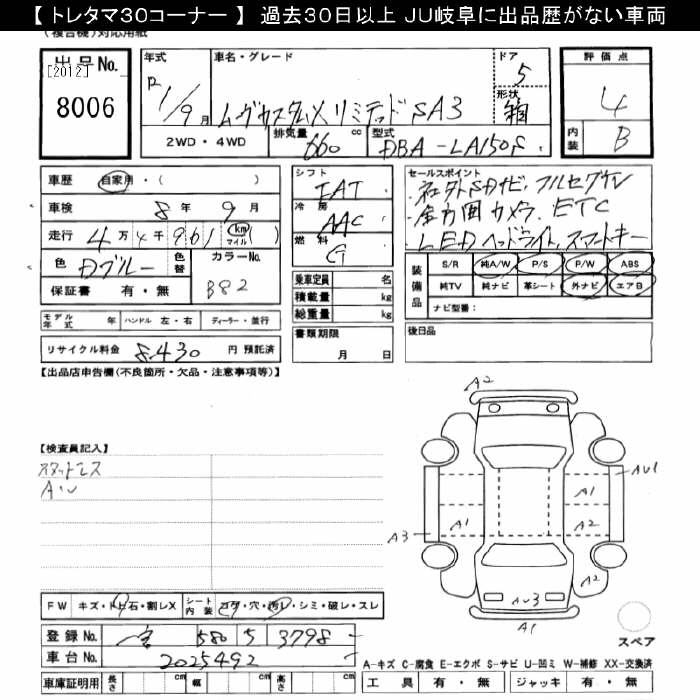 【 トレタマ30コーナー 】 過去30日以上 JU岐阜に出品歴がない車両
(複合機)対応用紙
出品No.
[2012]
8006
年式
R1/9月
車名・グレード
ムーヴカスタムX リミテッド SA3
ドア
5
形状
箱
評価点
4
内装
B
2WD・4WD
排気量 660 cc
型式 DBA-LA150S
車歴 自家用・( )
車検 8年 9月
走行 4万4千961 (km マイル)( )
色 Dブルー
色替
カラーNo. B82
保証書 有・無
シフト
IAT
冷房
AAC
燃料
G
乗車定員 名
積載量 kg
総重量 kg
書類期限
月 日
セールスポイント
・社外SDナビ、フルセグTV
・全方囲カメラ、ETC
・LEDヘッドライト、スマートキー
装備品
S/R 純A/W P/S P/W ABS
純TV 純ナビ 革シート 外ナビ エアB
ナビ型番:
モデル年式 年 ハンドル 左・右 ディーラー・並行
後日品
リサイクル料金 8,430 円 預託済
【出品店申告欄(不良箇所・欠品・注意事項等)】
【検査員記入】
スタッドレス
A・U
A2
AU1
A1
A3
A1
A2
A2
AU3
A1
スペア
FW キズ・トビ石・割レX
シート内装 コゲ・穴・汚レ・シミ・破レ・スレ
登録No. 580 5 3798
車台No. 2025492
車庫証明用 長さ cm 幅 cm 高さ cm
A-キズ C-腐食 E-エクボ S-サビ U-凹ミ W-補修 XX-交換済
工具 有・無 ジャッキ 有・無